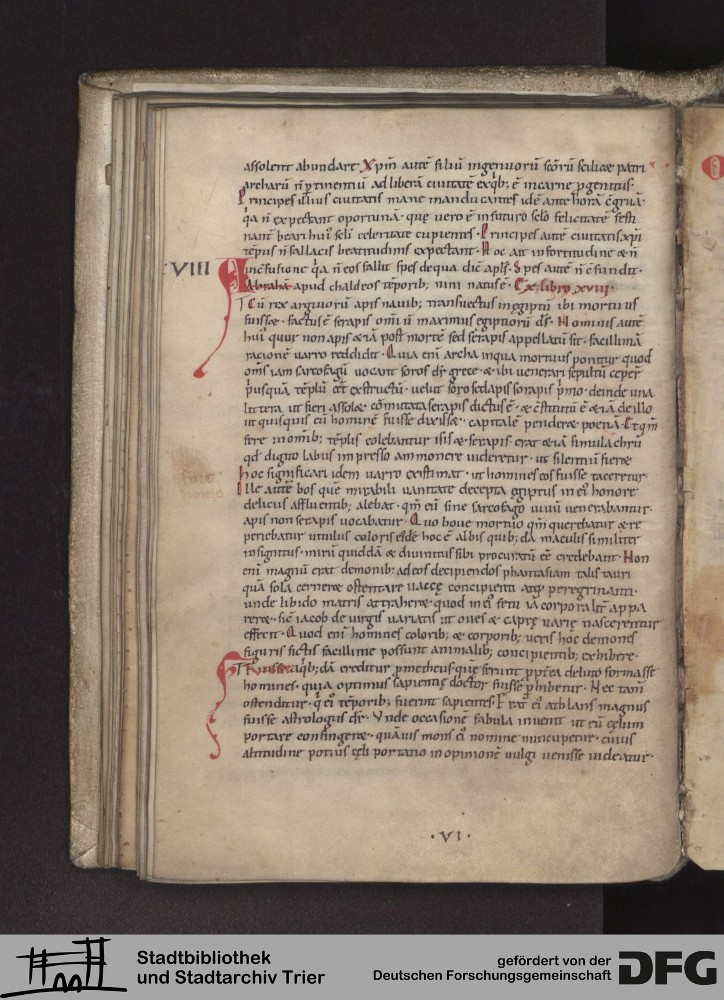 assolent abundare. Xpm̄ autē filiū ingenuorū sc̄orū scilicæ patri
archarū n̄ ptinentiū ad liberā ciuitatē ex qb; ē in carne pgenitus.
Principes illius ciuitatis mane manducantes id ē ante horā c̄gruā.
qa n̄ expectant oportunā. quę uero ē in futuro sclo felicitatē festi
nantē beari hui' scli celeritate cupientes. Principes autē ciuitatis xpi
tēpus n̄ fallacis beatitudinis expectant. Hoc ait in fortitudine & n̄
VIII in c̄fusione qa n̄ eos fallit spes de qua dic̄ apls. Spes autē n̄ c̄fundit.
Abrahā apud chaldeos tēporib; nini natus ē. Ex libro xviii.
Cū rex argiuorū apis nauib; transuectus in ęgiptū ibi mortuus
fuissæ. factus ē serapis om̄iū maximus egiptiorū ds̄. Nominis autē
hui' quur non apis &iā post mortē sed serapis appellatus sit. facillimā
rationē uarro reddidit. Quia eni archa in qua mortuus ponitur quod
om̄s iam sarcofagū uocant soros dr̄ grece. & ibi uenerari sepultū ceper̄
pusquā tēplū e&#x27; exstructū. uelut soro sed apis sorapis pmo. deinde una
littera ut fieri assolæ cōmutata serapis dictus ē. & c̄stitutū ē &iā de illo
ut quisquis eū hominē fuisse dixissæ. capitalē penderæ poenā. Et qm̄
fere in omib; tēplis colebantur isis & serapis erat &iā simulachrū
qd̄ digito labiis impresso ammonere uideretur. ut silentiū fieræ
hoc significari idem uarro existimat. ut homines eos fuisse taceretur.
Ille autē bos quē mirabili uanitate decepta ęgiptus in ei' honore
deliciis affluentib; alebat. qm̄ eū sine sarcofago uiuū uenerabantur.
apis non serapis uocabatur. Quo boue mortuo qm̄ querebatur & re
periebatur uitulus coloris eiusdē hoc ē albis quib;dā maculis similiter
insignitus. mirū quiddā & diuinitus sibi procuratū ee credebant. Non
eni magnū erat demonib; ad eos decipiendos phantasiam talis tauri
quā sola cerneræ ostentare uaccę concipienti atq; peregrinanti.
unde libido matris attraheræ quod in ei' fetu iā corporalit̄ appa
reræ. sic̄ iacob de uirgis uariatis ut oues & caprę uarię nascerentur
effecit. Quod eni homines colorib; & corporib; ueris hoc demones
figuris fictis facillime possunt animalib; concipientib; exhibere.
homines. quia optimus sapientię doctor fuisse phibetur. Nec tam̄
ostenditur. qi ei' tēporib; fuerint sapientes. Erat ei' athlans magnus
fuisse astrologus dr̄. Unde occasionē fabula inuenit ut eū cęlum
portare confingeræ. quāuis mons ei' nomine nuncupetur. cuius
altitudine potius cęli portatio in opinionē uulgi uenisse uideatur.
· VI ·
Stadtbibliothek
und Stadtarchiv Trier
gefördert von der
Deutschen Forschungsgemeinschaft
DFG